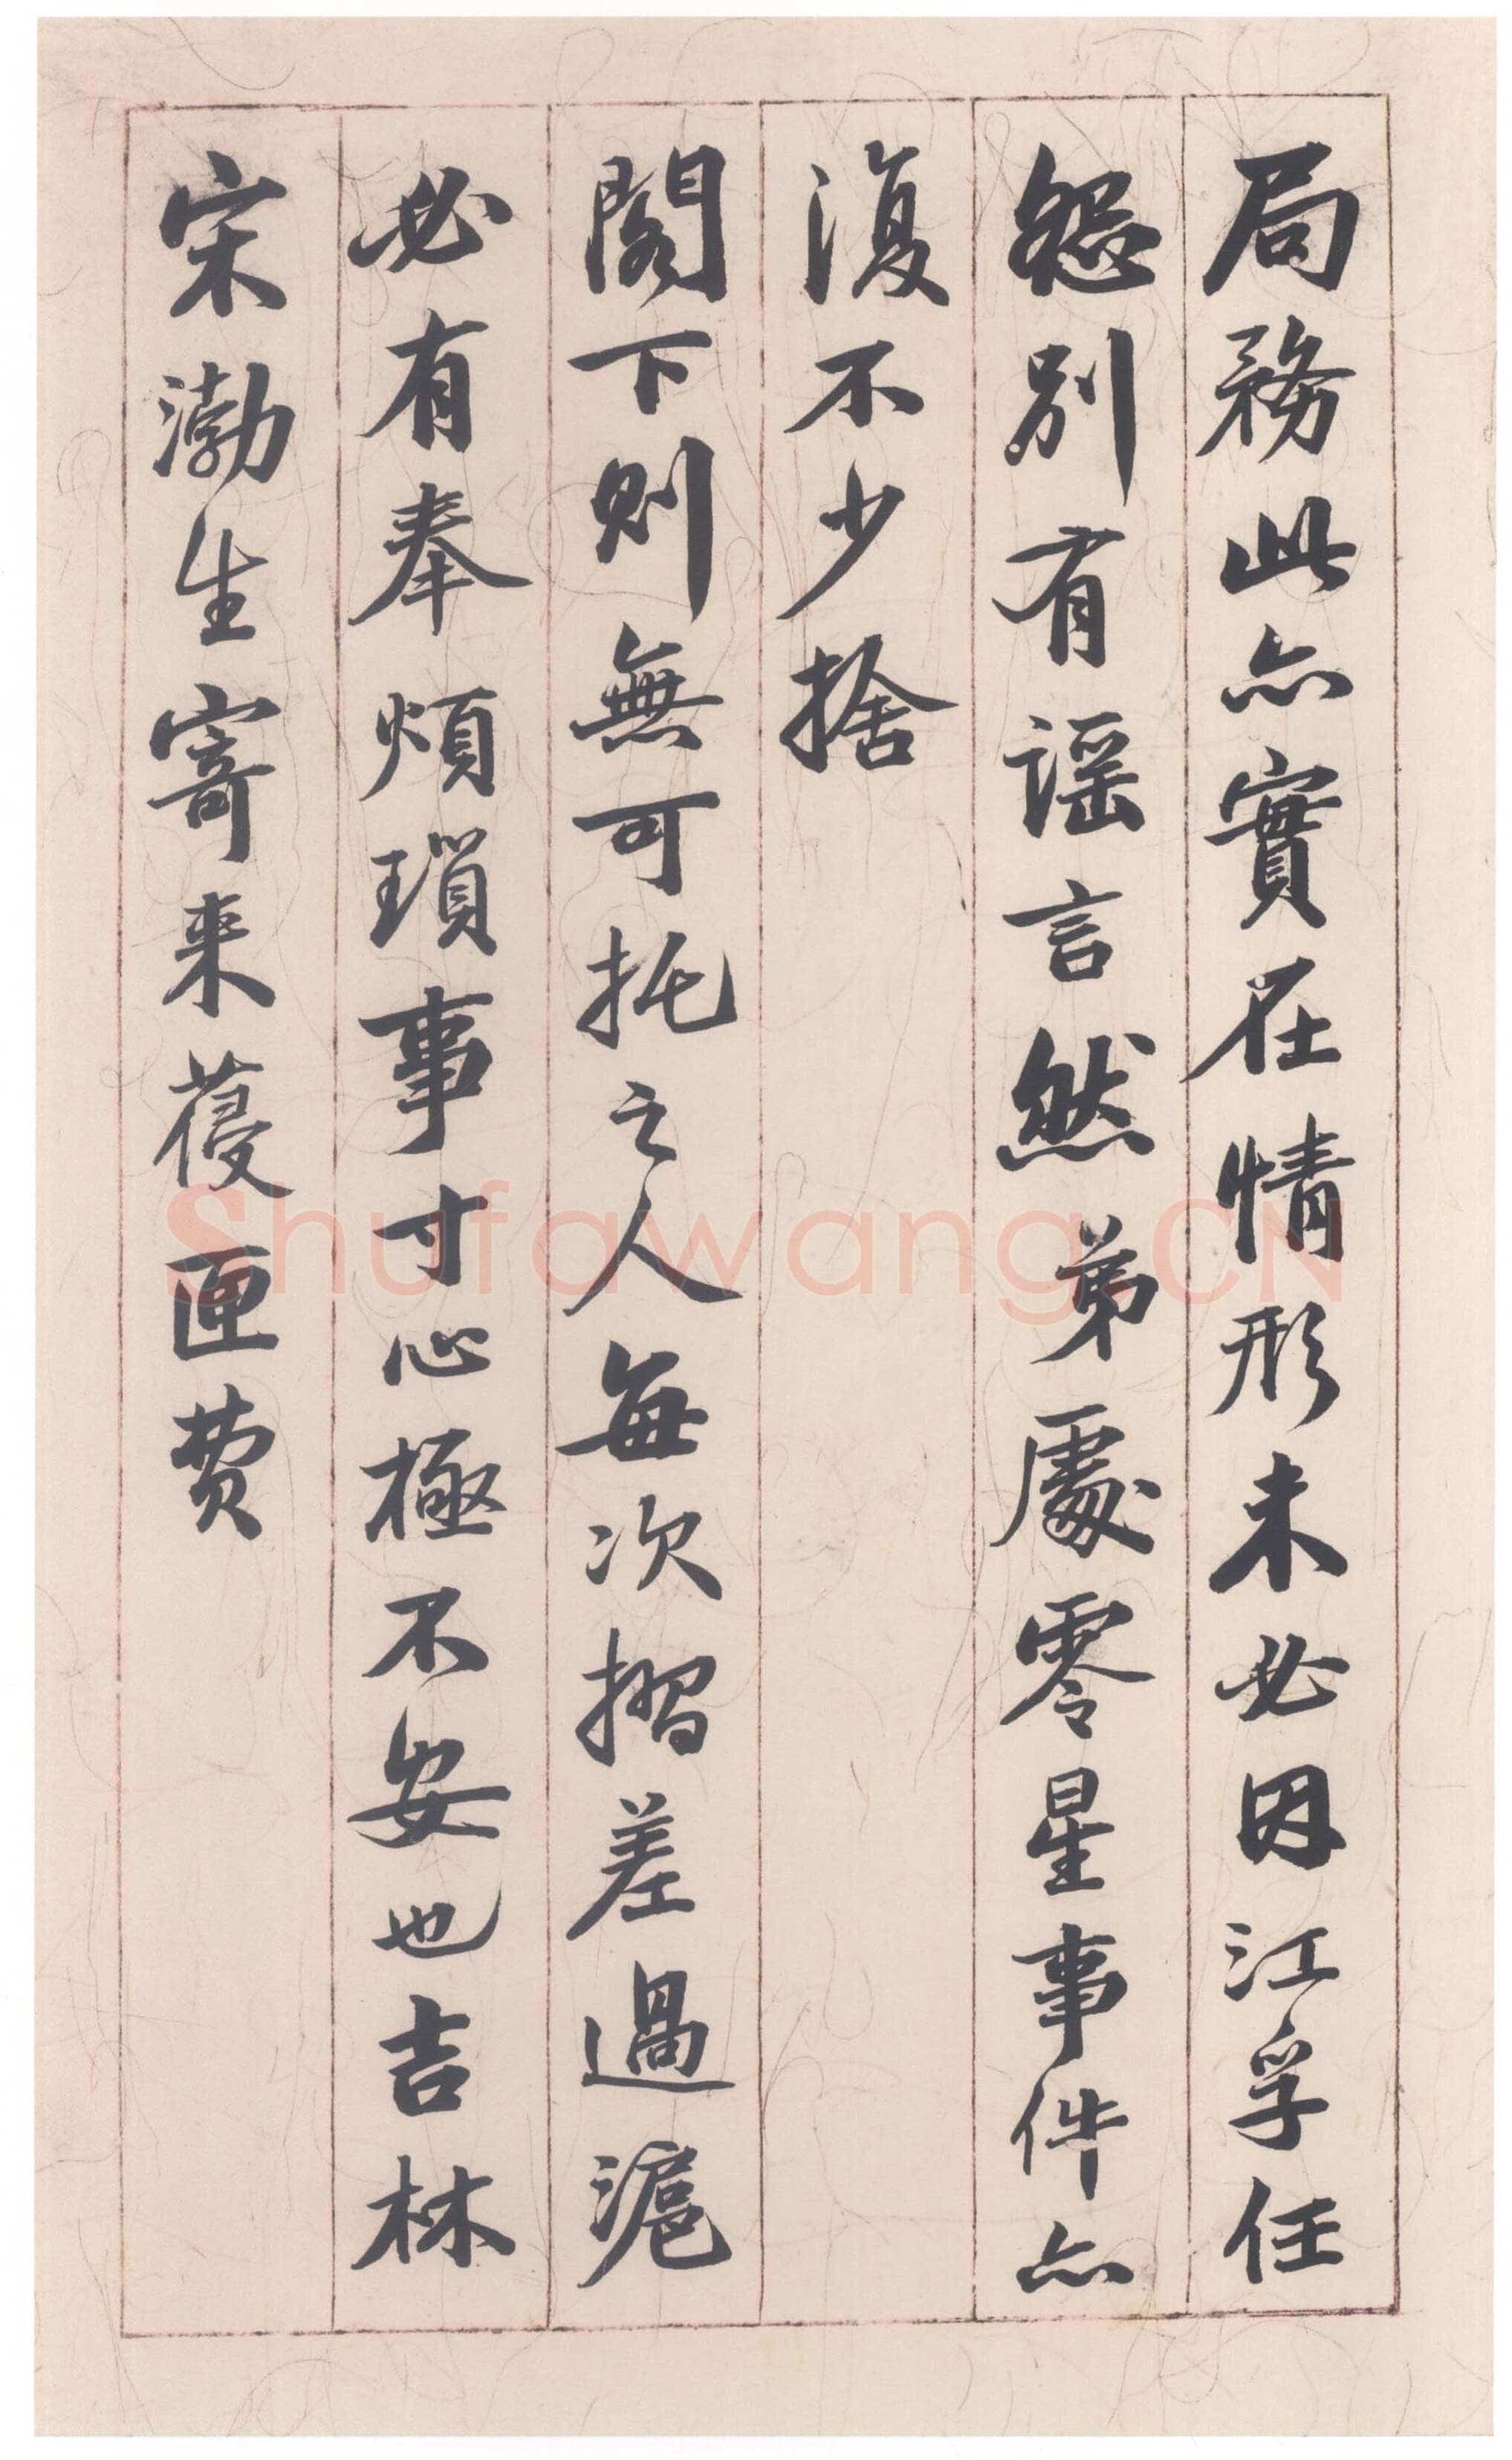 局務此亦實在情形未必因江孚任
怨別有謡言然弟處零星事件亦
復不少捨
閣下則無可托之人每次摺差過滬
必有奉煩瑣事寸心極不安也吉林
宋渤生寄来葠匣費
Shufawang.CN